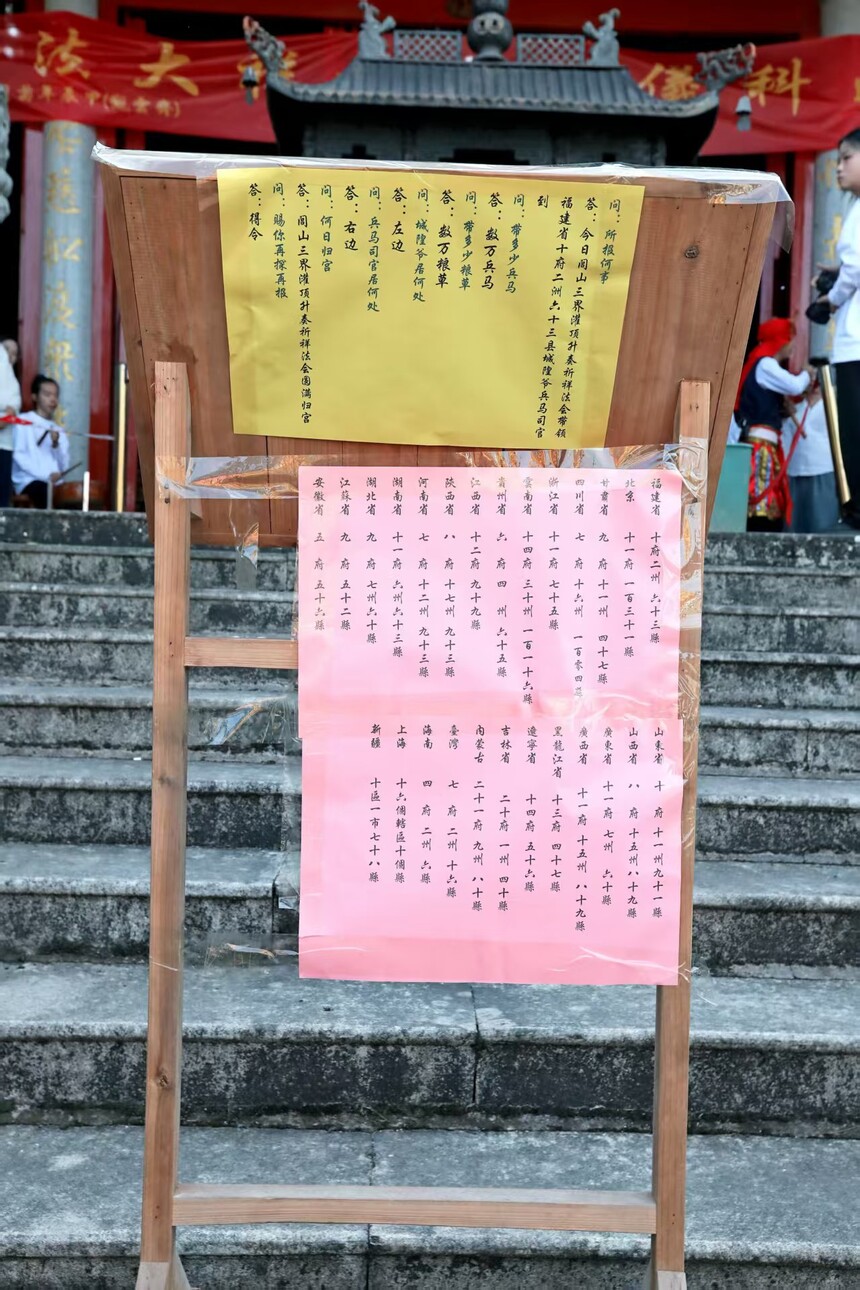 科儀
大法
问：所报何事
答：今日闾山三界灌顶升奏祈祥法会带领
福建省十府二洲六十三县城隍爷兵马司官
到
问：带多少兵马
答：数万兵马
问：带多少粮草
答：数万粮草
问：城隍爷居何处
答：左边
问：兵马司官居何处
答：右边
问：何日归宫
答：闾山三界灌顶升奏祈祥法会圆满归宫
问：赐你再探再报
答：得令
福建省 十府二州 六十三縣
北京 十一府 一百三十一縣
甘肅省 九府 十一州 四十七縣
四川省 七府 十六州 一百零四縣
浙江省 十一府 七十五縣
雲南省 十四府 三十州 一百一十六縣
貴州省 六府 四州 六十五縣
江西省 十二府 九十九縣
陝西省 八府 十七州 九十三縣
河南省 七府 十二州 九十三縣
湖南省 十一府 六州六十三縣
湖北省 九府 七州六十縣
江蘇省 九府 五十二縣
安徽省 五府 五十六縣
山東省 十府 十一州九十一縣
山西省 八府 十五州八十九縣
廣東省 十一府 七州 六十縣
廣西省 十一府 十五州 八十九縣
黑龍江省 十三府 四十七縣
遼寧省 十四府 五十六縣
吉林省 二十府 一州 四十縣
內蒙古 二十一府 九州 八十縣
臺灣 七府 二州 十六縣
海南 四府 二州 六縣
上海 十六個轄區十個縣
新疆 十區一市七十八縣